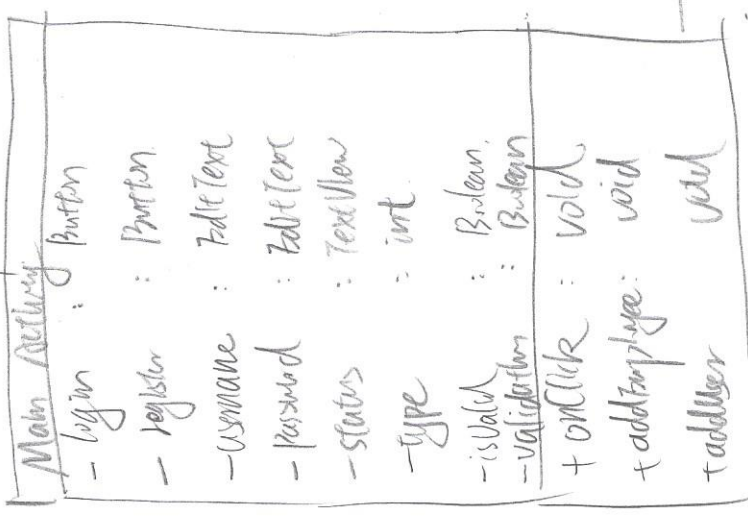 Main Activity
- login : Button
- register : Button
- username : EditText
- Password : EditText
- status : TextView
- type : int
- isValid : Boolean
- validation : Boolean
+ onClick : void
+ addEmployee : void
+ addUser void